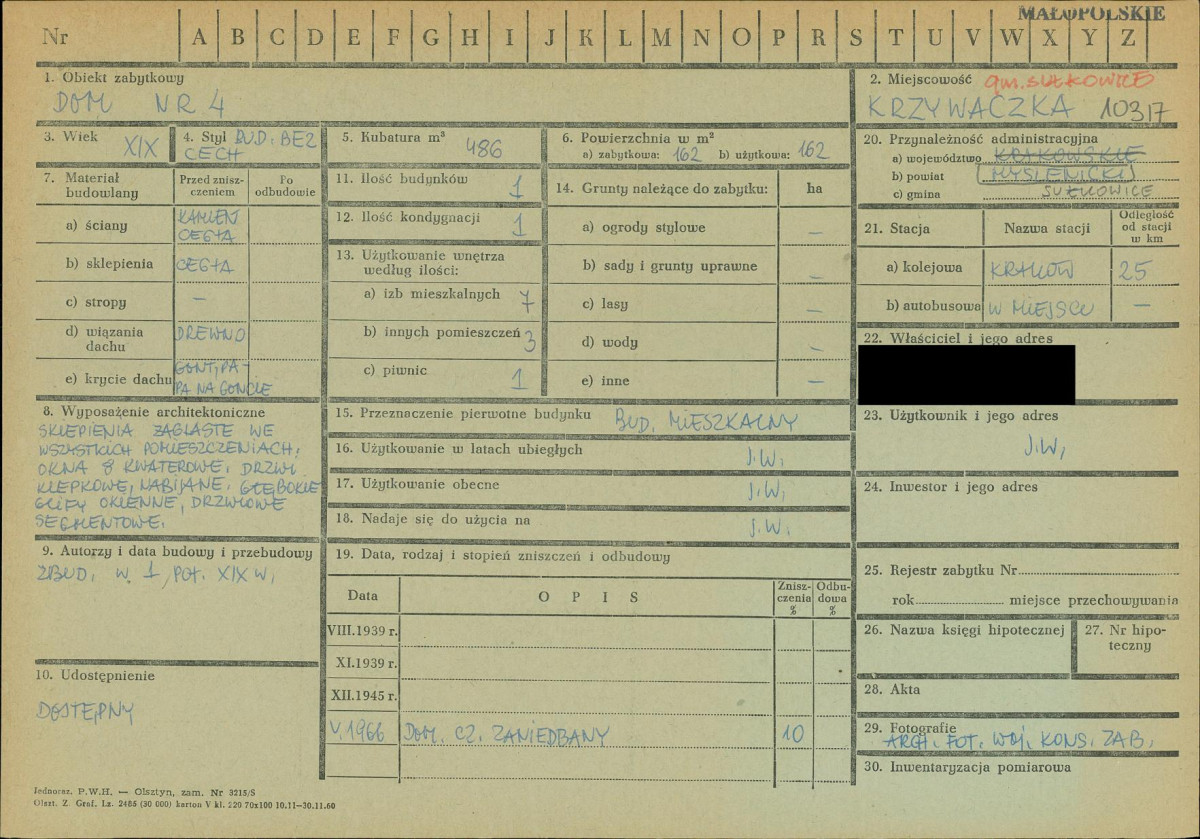 MAŁOPOLSKIE
Nr A B C D E F G H I J K L M N O P R S T U V W X Y Z
1. Obiekt zabytkowy
DOM NR 4
2. Miejscowość gm. SUŁKOWICE
KRZYWACZKA 10317
3. Wiek XIX
4. Styl BUD. BEZ
CECH
5. Kubatura m³ 486
6. Powierzchnia w m²
a) zabytkowa: 162 b) użytkowa: 162
20. Przynależność administracyjna
a) województwo KRAKOWSKIE
b) powiat MYŚLENICKI
c) gmina SUŁKOWICE
7. Materiał budowlany
Przed znisz-
czeniem
Po
odbudowie
a) ściany KAMIEŃ
CEGŁA
b) sklepienia CEGŁA
c) stropy —
d) wiązania
dachu DREWNO
e) krycie dachu GONT, PA-
PA NA GONCIE
11. Ilość budynków 1
12. Ilość kondygnacji 1
13. Użytkowanie wnętrza
według ilości:
a) izb mieszkalnych 7
b) innych pomieszczeń 3
c) piwnic 1
14. Grunty należące do zabytku: ha
a) ogrody stylowe —
b) sady i grunty uprawne —
c) lasy —
d) wody —
e) inne —
21. Stacja Nazwa stacji Odległość
od stacji
w km
a) kolejowa KRAKÓW 25
b) autobusowa W MIEJSCU —
22. Właściciel i jego adres
8. Wyposażenie architektoniczne
SKLEPIENIA ŻAGLASTE WE
WSZYSTKICH POMIESZCZENIACH.
OKNA 8 KWATEROWE, DRZWI
KLEPKOWE, NABIJANE. GŁĘBOKIE
GLIFY OKIENNE, DRZWIOWE
SEGMENTOWE.
15. Przeznaczenie pierwotne budynku BUD. MIESZKALNY
16. Użytkowanie w latach ubiegłych J.W.
17. Użytkowanie obecne J.W.
18. Nadaje się do użycia na J.W.
23. Użytkownik i jego adres
J.W.
24. Inwestor i jego adres
9. Autorzy i data budowy i przebudowy
ZBUD. W 1 POŁ. XIX W.
19. Data, rodzaj i stopień zniszczeń i odbudowy
Data OPIS Znisz-
czenia
%
Odbu-
dowa
%
VIII.1939 r.
XI.1939 r.
XII.1945 r.
V.1966 DOM. CZ. ZANIEDBANY 10
10. Udostępnienie
DOSTĘPNY
25. Rejestr zabytku Nr
rok miejsce przechowywania
26. Nazwa księgi hipotecznej
27. Nr hipo-
teczny
28. Akta
29. Fotografie
ARCH. FOT. WOJ. KONS. ZAB.
30. Inwentaryzacja pomiarowa
Jednoraz. P.W.H. — Olsztyn, zam. Nr 3215/S
Olszt. Z. Graf. Lz. 2485 (30 000) karton V kl. 220 70x100 10.11—30.11.60